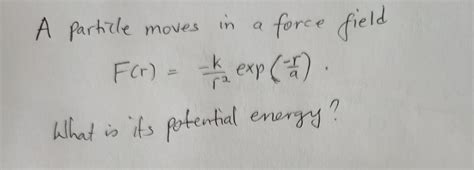 A particle moves in a force field
F(r) = -k/r² exp(-r/a) .
What is its potential energy?